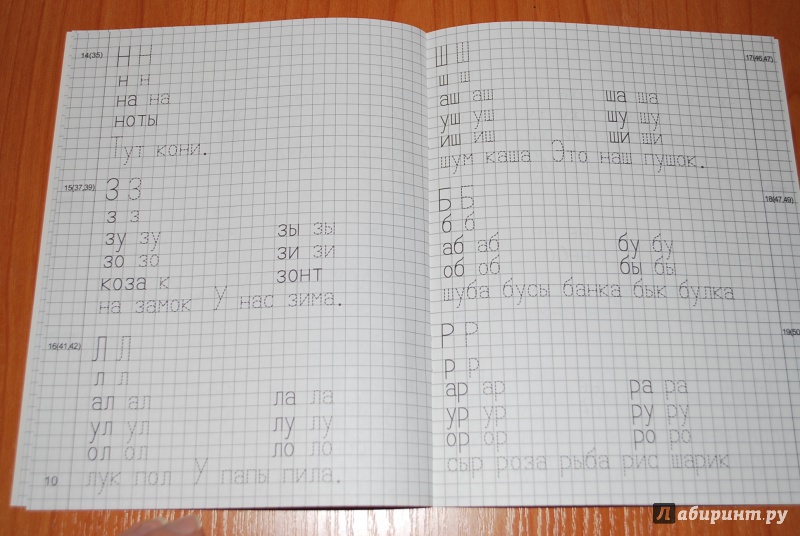 14(35)
Н Н
н н
на на
ноты
Тут кони.
15(37,39)
З З
з з
зу зу зы зы
зо зо зи зи
коза к зонт
на замок У нас зима.
16(41,42)
Л Л
л л
ал ал ла ла
ул ул лу лу
ол ол ло ло
лук пол У папы пила.
10
17(46,47)
Ш Ш
ш ш
аш аш ша ша
уш уш шу шу
иш иш ши ши
шум каша Это наш пушок.
18(47,49)
Б Б
б б
аб аб бу бу
об об бы бы
шуба бусы банка бык булка
19(50
Р Р
р р
ар ар ра ра
ур ур ру ру
ор ор ро ро
сыр роза рыба рис шарик
Лабиринт.ру